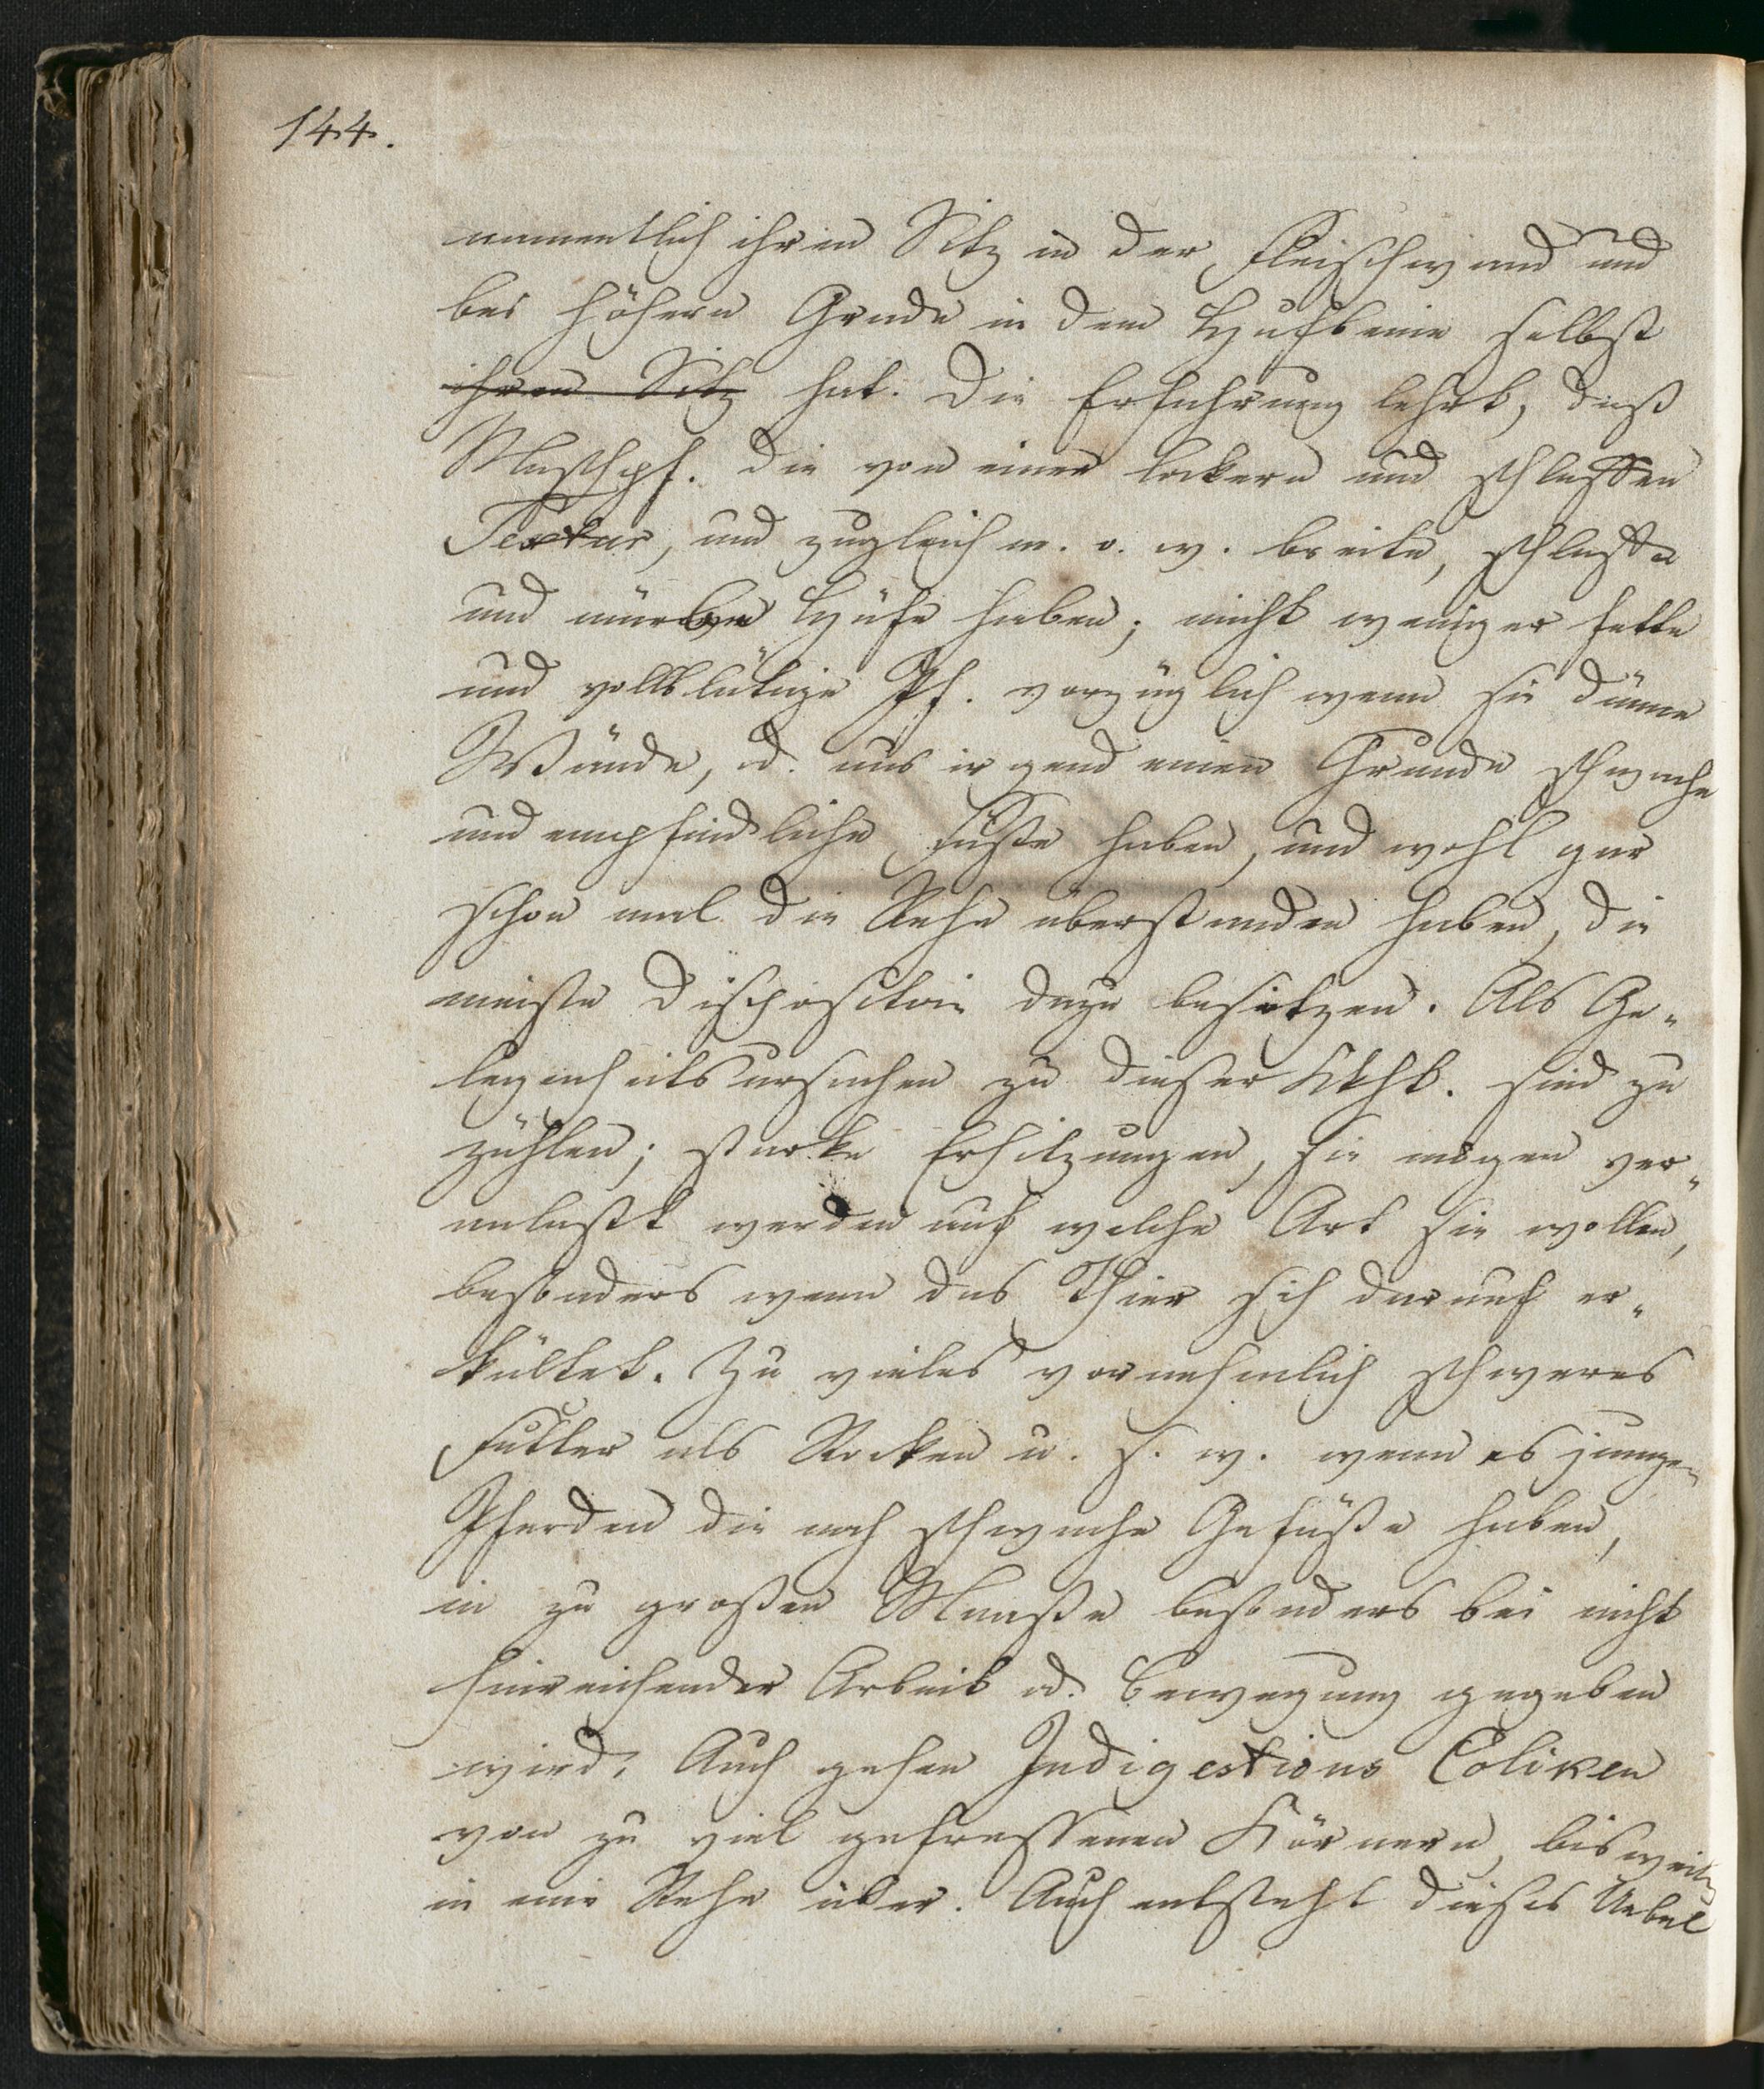 144.
namentlich ihren Sitz in der Fleischwand und
bei höhern Grade in dem Hufbeine selbst
ihren Sitz hat. Die Erfahrung lehrt, daß
Mastpf. die von einer lockern und schlaffen
Textur, und zugleich m. o. w. breite, schlaffe
und mürbe Hüfe haben; nicht weniger fette
und vollblütige Pf. vorzüglich wenn sie dünne
Wände, od. aus irgend einen Grunde schwache
und empfindliche Füße haben, und wohl gar
schon mal die Rehe überstanden haben, die
meiste Disposition dazu besitzen. Als Ge-
legenheitsursachen zu dieser Kkht. sind zu
zählen; starke Erhitzungen, sie mögen ver-
anlaßt werden auf welche Art sie wollen,
besonders wenn das Thier sich darauf er-
kältet. Zu vieles vornehmlich schweres
Futter als Rocken u. s. w. wenn es jungen
Pferden die noch schwache Gefäße haben,
in zu großen Maaße besonders bei nicht
hinreichender Arbeit od. Bewegung gegeben
wird. Auch gehen Indigestions Coliken
von zu viel gefressenen Körnern, bisweiln
in eine Rehe über. Auch entsteht dieses Uebel